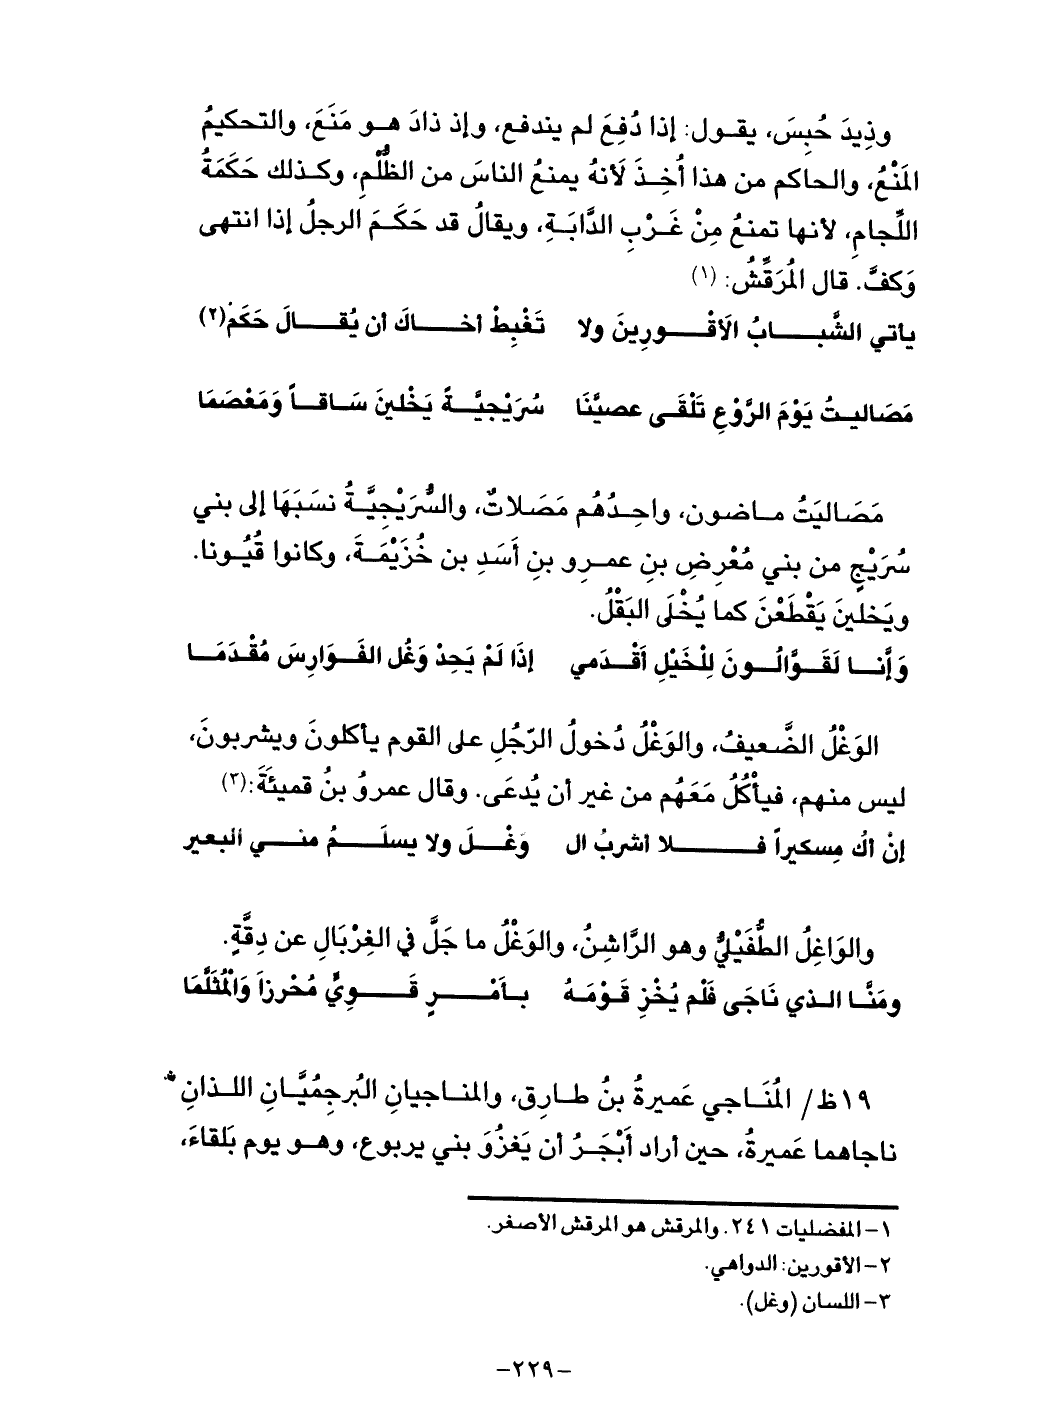 وذِيدَ حُبِسَ، يقـول: إذا دُفِعَ لم يندفع، وإذ ذادَ هـو مَنَعَ، والتحكيمُ
المَنْعُ، والحاكم من هذا أُخِـذَ لأنهُ يمنعُ الناسَ من الظُّلْمِ، وكـذلك حَكَمَةُ
اللِّجامِ، لأنها تمنعُ مِنْ غَـرْبِ الدَّابَـةِ، ويقالُ قد حَكَـمَ الرجلُ إذا انتهى
وَكفَّ. قال المُرَقِّشُ: (١)
يأتي الشَّبـــابُ الأَقْـــورِينَ ولا تَغْبِطْ أخـــاكَ أن يُقـــالَ حَكَمْ(٢)
مَصَاليـتُ يَوْمَ الرَّوْعِ تَلْقَـى عصيَّنَا سُرَيْجيَّـــةً يَخْلينَ سَـاقـاً وَمَعْصَمَا
مَصَـاليَتُ مـاضون، واحِـدُهُم مَصَـلاتٌ، والسُّرَيْجِيَّـةُ نسَبَهَا إلى بني
سُرَيْجٍ من بني مُعْرِضِ بنِ عمـرِو بنِ أَسَدِ بن خُزَيْمَـةَ، وكانوا قُيُـونا.
ويَخلينَ يَقْطَعْنَ كما يُخْلَى البَقْلُ.
وَأَنـا لَقَـوَّالُـونَ لِلْخَيْلِ أَقْـدَمي إذَا لَمْ يَجِدْ وَغُل الفَـوَارِسَ مُقْـدَمَـا
الوَغْلُ الضَّعيفُ، والوَغْلُ دُخولُ الرّجُلِ على القوم يأكلونَ ويشربونَ،
ليس منهم، فيأْكُلُ مَعَهُم من غير أن يُدعَى. وقال عمروُ بنُ قميئَةَ:(٣)
إنْ أكُ مِسكيراً فـــــلا أشربُ ال وَغْـــلَ ولا يسلَـــمُ منـــي البعير
والوَاغِلُ الطُّفَيْليُّ وهو الرَّاشِنُ، والوَغْلُ ما جَلَّ في الغِرْبَالِ عن دِقَّةٍ.
ومَنَّـا الـذي نَاجَى فَلْم يُخْزِ قَـوْمَـهُ بـأمْـــرٍ قَـــويٍّ مُحْرزاَ وَالْمُثَلَّمَا
١٩ظ/ المُنَـاجي عَميرةُ بنُ طـارِق، والمنـاجيانِ البُرجِمُيَّـانِ اللـذانِ
ناجاهما عَميرةُ، حين أراد أَبْجَـرُ أن يَغزُوَ بني يربوع، وهـو يوم بَلقاءَ،
١- المفضليات ٢٤١. والمرقش هو المرقش الأصغر.
٢- الأقورين: الدواهي.
٣- اللسان (وغل).
-٢٢٩-